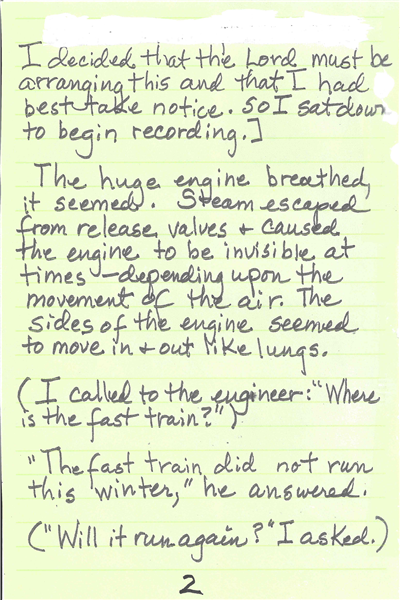 I decided that the Lord must be
arranging this and that I had
best take notice. So I sat down
to begin recording.]
The huge engine breathed,
it seemed. Steam escaped
from release valves + caused
the engine to be invisible at
times—depending upon the
movement of the air. The
sides of the engine seemed
to move in + out like lungs.
(I called to the engineer: "Where
is the fast train?")
"The fast train did not run
this winter," he answered.
("Will it run again?" I asked.)
2